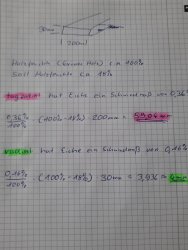 30mm
200mm
Holzfeuchte (Grünes Holz) ca 100%
Soll Holzfeuchte ca 18%
Tangential hat Eiche ein Schwindmaß von 0,36%
0,36% / 100% · (100% - 18%) · 200mm =
Radial hat Eiche ein Schwindmaß von 0,16%
0,16% / 100% · (100% - 18%) · 30mm = 3,936 ≈